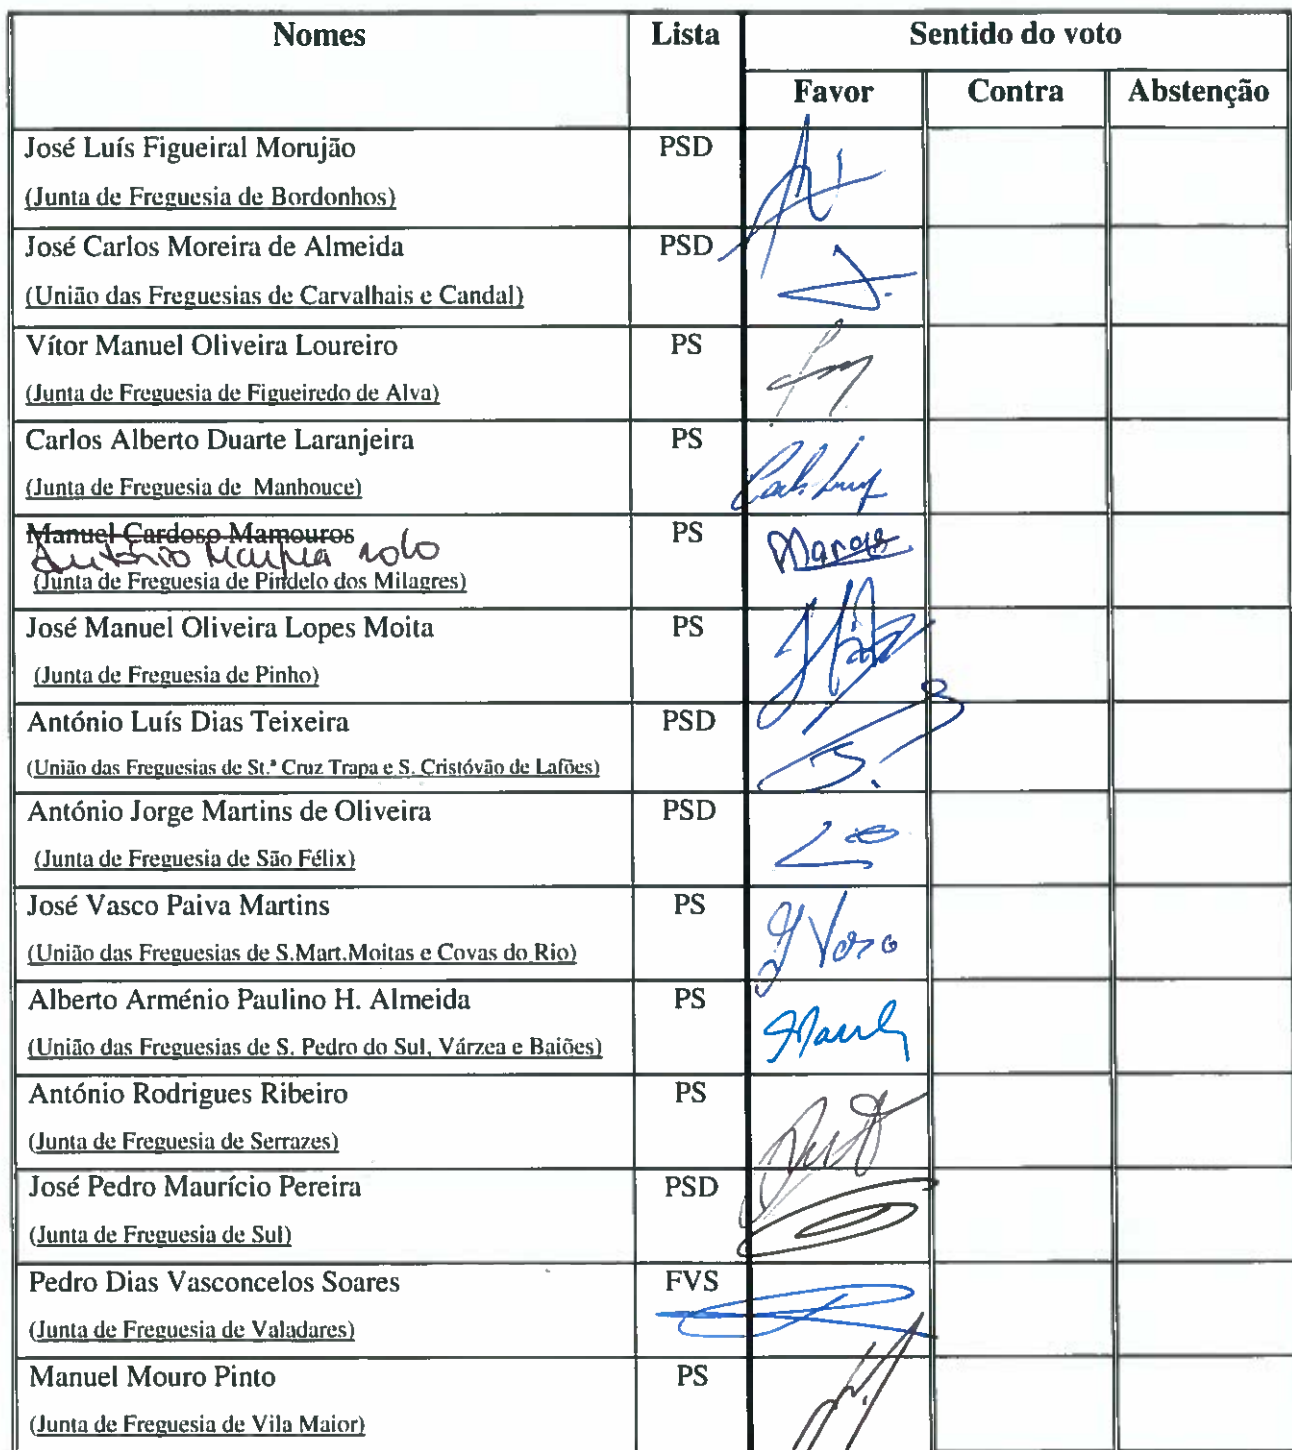 Nomes Lista Sentido do voto
Favor Contra Abstenção
José Luís Figueiral Morujão PSD
(Junta de Freguesia de Bordonhos)
José Carlos Moreira de Almeida PSD
(União das Freguesias de Carvalhais e Candal)
Vítor Manuel Oliveira Loureiro PS
(Junta de Freguesia de Figueiredo de Alva)
Carlos Alberto Duarte Laranjeira PS
(Junta de Freguesia de Manhouce)
Manuel Cardoso Mamouros PS
António
(Junta de Freguesia de Pindelo dos Milagres)
José Manuel Oliveira Lopes Moita PS
(Junta de Freguesia de Pinho)
António Luís Dias Teixeira PSD
(União das Freguesias de St.ª Cruz Trapa e S. Cristóvão de Lafões)
António Jorge Martins de Oliveira PSD
(Junta de Freguesia de São Félix)
José Vasco Paiva Martins PS
(União das Freguesias de S.Mart.Moitas e Covas do Rio)
Alberto Arménio Paulino H. Almeida PS
(União das Freguesias de S. Pedro do Sul, Várzea e Baiões)
António Rodrigues Ribeiro PS
(Junta de Freguesia de Serrazes)
José Pedro Maurício Pereira PSD
(Junta de Freguesia de Sul)
Pedro Dias Vasconcelos Soares FVS
(Junta de Freguesia de Valadares)
Manuel Mouro Pinto PS
(Junta de Freguesia de Vila Maior)